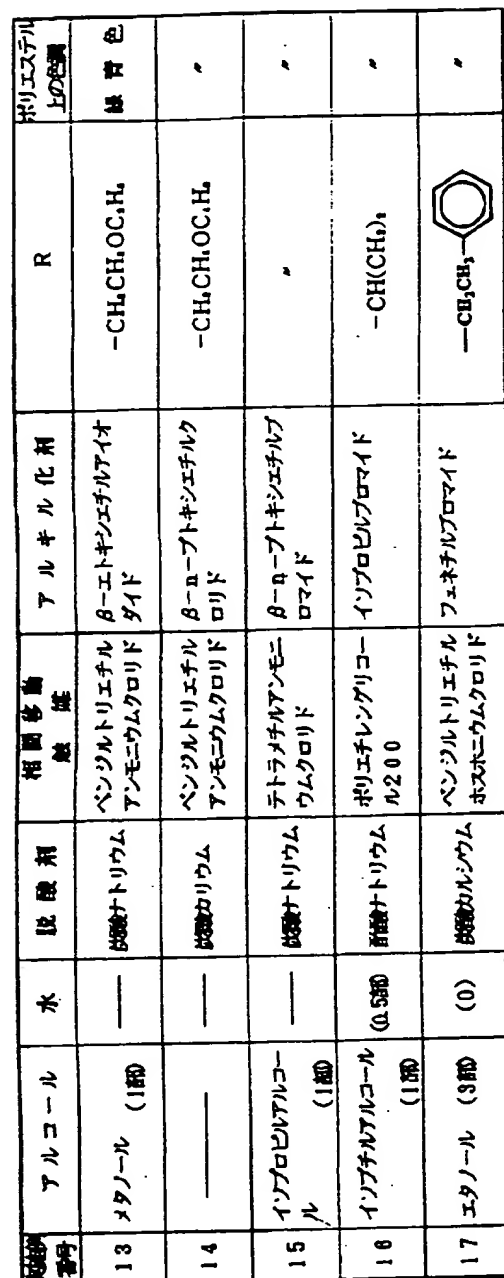 実施例番号 アルコール 水 脱酸剤 相間移動触媒 アルキル化剤 R ポリエステル上の色調
13 メタノール (1部) —— 炭酸ナトリウム ベンジルトリエチルアンモニウムクロリド β-エトキシエチルアイオダイド -CH₂CH₂OC₂H₅ 緑青色
14 —— —— 炭酸カリウム ベンジルトリエチルアンモニウムクロリド β-n-ブトキシエチルクロリド -CH₂CH₂OC₄H₉ 〃
15 イソプロピルアルコール (1部) —— 炭酸ナトリウム テトラメチルアンモニウムクロリド β-n-ブトキシエチルブロマイド 〃 〃
16 イソブチルアルコール (1部) (0.5部) 酢酸ナトリウム ポリエチレングリコール200 イソプロピルブロマイド -CH(CH₃)₂ 〃
17 エタノール (3部) (0) 炭酸カルシウム ベンジルトリエチルホスホニウムクロリド フェネチルブロマイド —CH₂CH₂— 〃